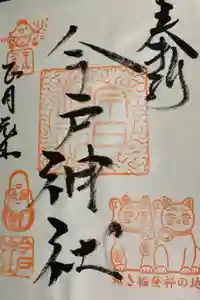 奉拝
今戸神社
正月
招き猫発祥の地